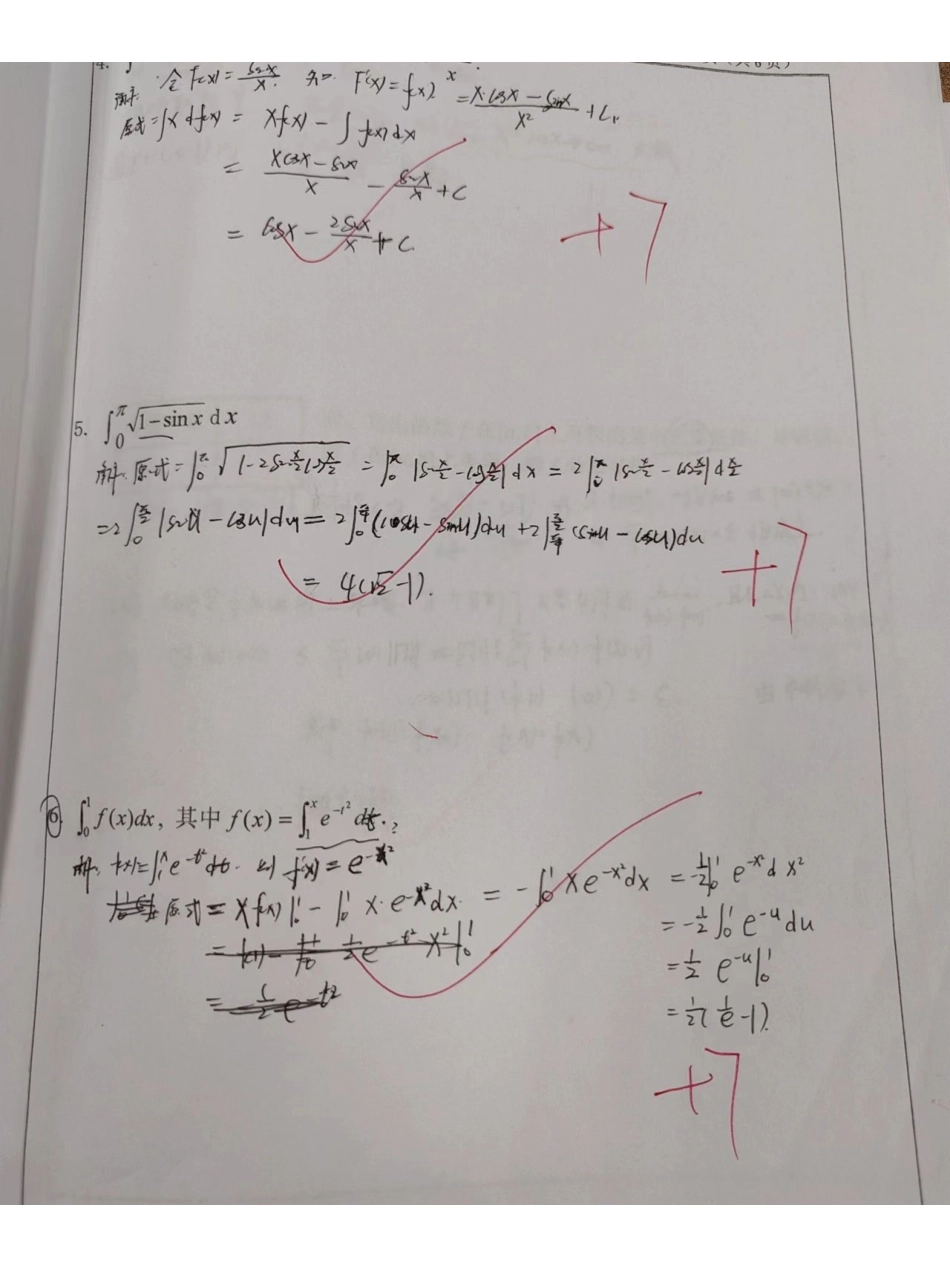 4.
解: 令 F(x) = \frac{sin x}{x} 知 F'(x) = f(x) = \frac{x·cos x - sin x}{x^2} + C_1
原式 = ∫x df(x) = xf(x) - ∫f(x)dx
= \frac{xcos x - sin x}{x} - \frac{sin x}{x} + C
= cos x - \frac{2sin x}{x} + C.
+7
5. ∫_0^π \sqrt{1-sin x} dx
解: 原式 = ∫_0^π \sqrt{1-2sin\frac{x}{2}cos\frac{x}{2}} = ∫_0^π |sin\frac{x}{2} - cos\frac{x}{2}| dx = 2∫_0^π |sin\frac{x}{2} - cos\frac{x}{2}| d\frac{x}{2}
= 2∫_0^{\frac{π}{2}} |sin u - cos u| du = 2∫_0^{\frac{π}{4}} (cos u - sin u) du + 2∫_{\frac{π}{4}}^{\frac{π}{2}} (sin u - cos u) du
= 4(√2 - 1).
+7
6. ∫_0^1 f(x)dx, 其中 f(x) = ∫_1^x e^{-t^2} dt. ?
解: f(x) = ∫_1^x e^{-t^2} dt. 则 f'(x) = e^{-x^2}
原式 = xf(x)|_0^1 - ∫_0^1 x·e^{-x^2}dx. = -∫_0^1 xe^{-x^2}dx = -\frac{1}{2}∫_0^1 e^{-x^2} d x^2
= -\frac{1}{2}∫_0^1 e^{-u} du
= \frac{1}{2} e^{-u}|_0^1
= \frac{1}{2}(\frac{1}{e} - 1).
+7